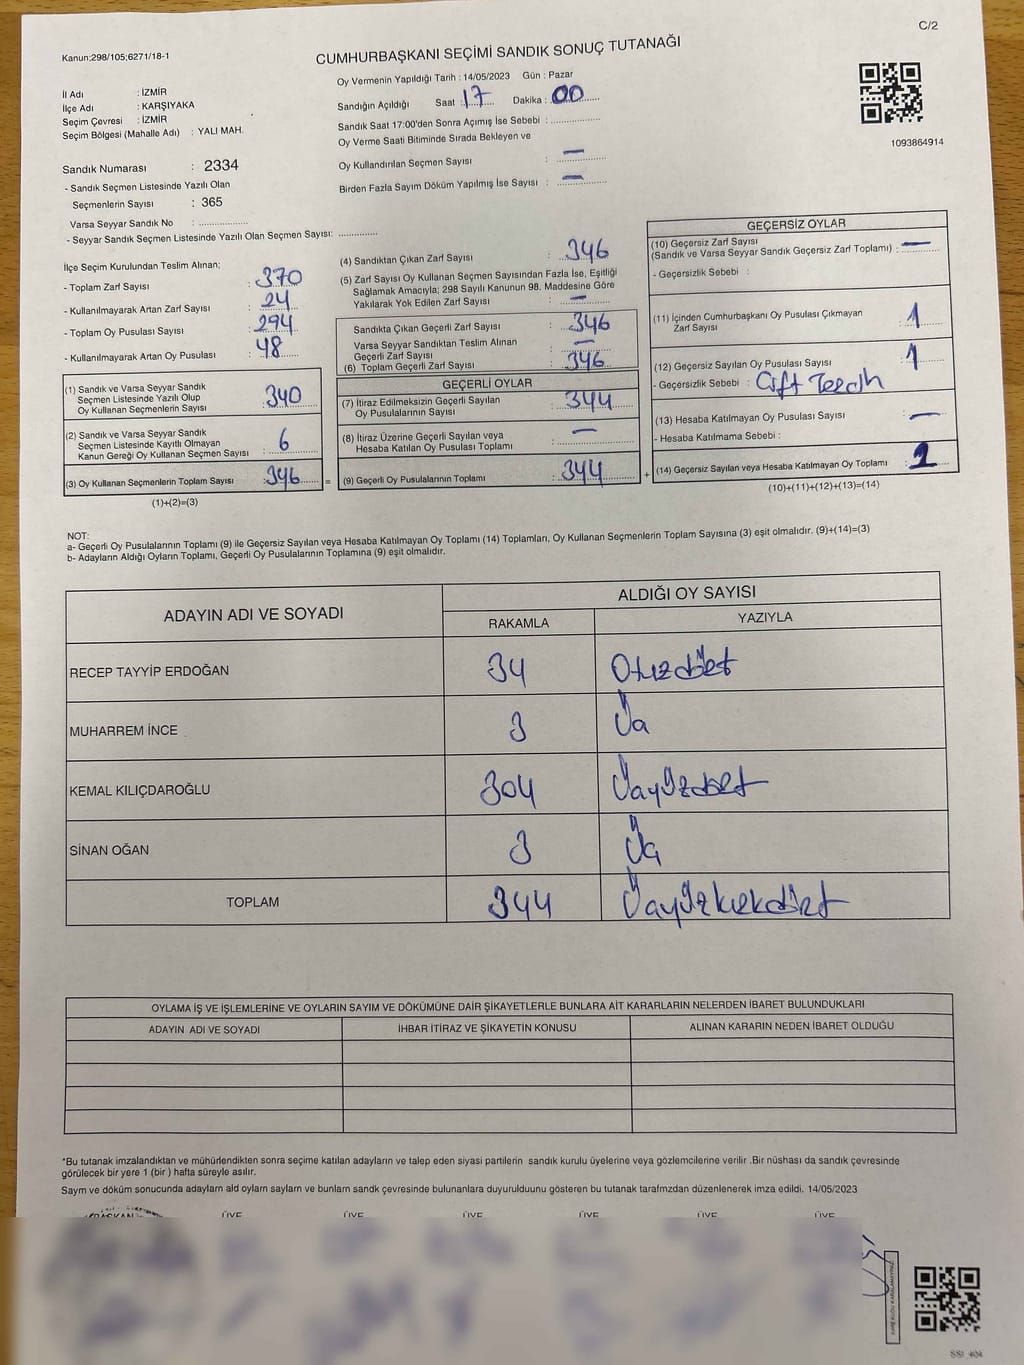 C/2
Kanun;298/105;6271/18-1
CUMHURBAŞKANI SEÇİMİ SANDIK SONUÇ TUTANAĞI
Oy Vermenin Yapıldığı Tarih : 14/05/2023 Gün : Pazar
İl Adı : İZMİR
İlçe Adı : KARŞIYAKA
Seçim Çevresi : İZMİR
Seçim Bölgesi (Mahalle Adı) : YALI MAH.
Sandığın Açıldığı Saat : 17 Dakika : 00
Sandık Saat 17:00'den Sonra Açımış İse Sebebi :
Oy Verme Saati Bitiminde Sırada Bekleyen ve
Oy Kullandırılan Seçmen Sayısı : —
Birden Fazla Sayım Döküm Yapılmış İse Sayısı : —
1093864914
Sandık Numarası : 2334
- Sandık Seçmen Listesinde Yazılı Olan
Seçmenlerin Sayısı : 365
Varsa Seyyar Sandık No :
- Seyyar Sandık Seçmen Listesinde Yazılı Olan Seçmen Sayısı:
İlçe Seçim Kurulundan Teslim Alınan:
- Toplam Zarf Sayısı : 370
- Kullanılmayarak Artan Zarf Sayısı : 24
- Toplam Oy Pusulası Sayısı : 294
- Kullanılmayarak Artan Oy Pusulası : 48
(1) Sandık ve Varsa Seyyar Sandık
Seçmen Listesinde Yazılı Olup
Oy Kullanan Seçmenlerin Sayısı : 340
(2) Sandık ve Varsa Seyyar Sandık
Seçmen Listesinde Kayıtlı Olmayan
Kanun Gereği Oy Kullanan Seçmen Sayısı : 6
(3) Oy Kullanan Seçmenlerin Toplam Sayısı : 346
(1)+(2)=(3)
(4) Sandıktan Çıkan Zarf Sayısı : 346
(5) Zarf Sayısı Oy Kullanan Seçmen Sayısından Fazla İse, Eşitliği
Sağlamak Amacıyla; 298 Sayılı Kanunun 98. Maddesine Göre
Yakılarak Yok Edilen Zarf Sayısı : —
Sandıkta Çıkan Geçerli Zarf Sayısı : 346
Varsa Seyyar Sandıktan Teslim Alınan
Geçerli Zarf Sayısı : —
(6) Toplam Geçerli Zarf Sayısı : 346
GEÇERLİ OYLAR
(7) İtiraz Edilmeksizin Geçerli Sayılan
Oy Pusulalarının Sayısı : 344
(8) İtiraz Üzerine Geçerli Sayılan veya
Hesaba Katılan Oy Pusulası Toplamı : —
= (9) Geçerli Oy Pusulalarının Toplamı : 344 +
GEÇERSİZ OYLAR
(10) Geçersiz Zarf Sayısı
(Sandık ve Varsa Seyyar Sandık Geçersiz Zarf Toplamı) : —
- Geçersizlik Sebebi :
(11) İçinden Cumhurbaşkanı Oy Pusulası Çıkmayan
Zarf Sayısı : 1
(12) Geçersiz Sayılan Oy Pusulası Sayısı : 1
- Geçersizlik Sebebi : Çift Tercih
(13) Hesaba Katılmayan Oy Pusulası Sayısı : —
- Hesaba Katılmama Sebebi :
(14) Geçersiz Sayılan veya Hesaba Katılmayan Oy Toplamı : 2
(10)+(11)+(12)+(13)=(14)
NOT:
a- Geçerli Oy Pusulalarının Toplamı (9) ile Geçersiz Sayılan veya Hesaba Katılmayan Oy Toplamı (14) Toplamları, Oy Kullanan Seçmenlerin Toplam Sayısına (3) eşit olmalıdır. (9)+(14)=(3)
b- Adayların Aldığı Oyların Toplamı, Geçerli Oy Pusulalarının Toplamına (9) eşit olmalıdır.
ADAYIN ADI VE SOYADI
ALDIĞI OY SAYISI
RAKAMLA YAZIYLA
RECEP TAYYİP ERDOĞAN 34 Otuzdört
MUHARREM İNCE 3 Üç
KEMAL KILIÇDAROĞLU 304 Üçyüzdört
SİNAN OĞAN 3 Üç
TOPLAM 344 Üçyüzkırkdört
OYLAMA İŞ VE İŞLEMLERİNE VE OYLARIN SAYIM VE DÖKÜMÜNE DAİR ŞİKAYETLERLE BUNLARA AİT KARARLARIN NELERDEN İBARET BULUNDUKLARI
ADAYIN ADI VE SOYADI İHBAR İTİRAZ VE ŞİKAYETİN KONUSU ALINAN KARARIN NEDEN İBARET OLDUĞU
*Bu tutanak imzalandıktan ve mühürlendikten sonra seçime katılan adayların ve talep eden siyasi partilerin sandık kurulu üyelerine veya gözlemcilerine verilir .Bir nüshası da sandık çevresinde
görülecek bir yere 1 (bir ) hafta süreyle asılır.
Sayım ve döküm sonucunda adaylarn ald oylarn saylarn ve bunlarn sandk çevresinde bulunanlara duyurulduunu gösteren bu tutanak tarafmzdan düzenlenerek imza edildi. 14/05/2023
BAŞKAN ÜYE ÜYE ÜYE ÜYE ÜYE ÜYE